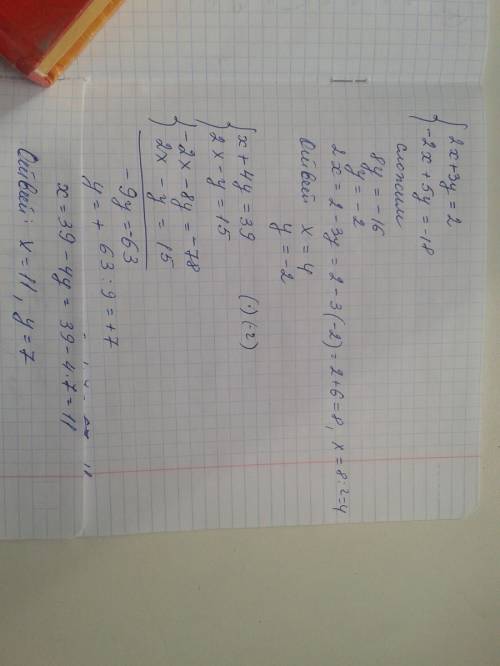 { 2x+3y=2
-2x+5y=-18
сложим
8y=-16
y=-2
2x=2-3y=2-3(-2)=2+6=8, x=8:2=4
Ответ x=4
y=-2
{ x+4y=39 (·)(-2)
2x-y=15
{ -2x-8y=-78
2x-y=15
-9y=63
y=+63:9=+7
x=39-4y=39-4·7=11
Ответ: x=11, y=7